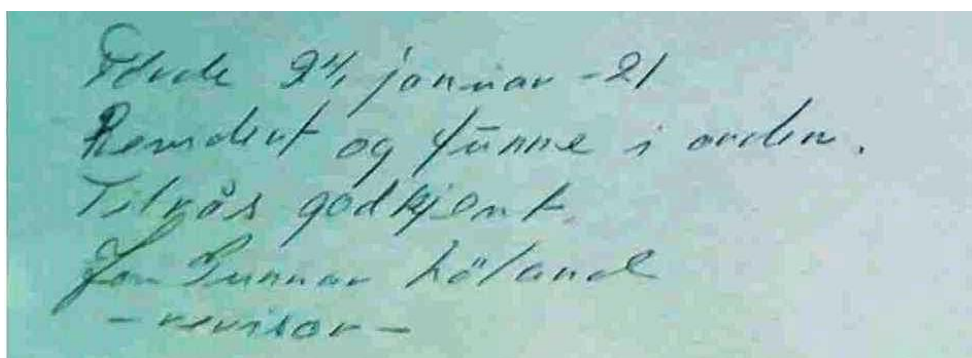 24/1 januar -21
Revidert og funne i orden.
Tilrås godkjent.
Jon Gunnar Höland
- revisor -